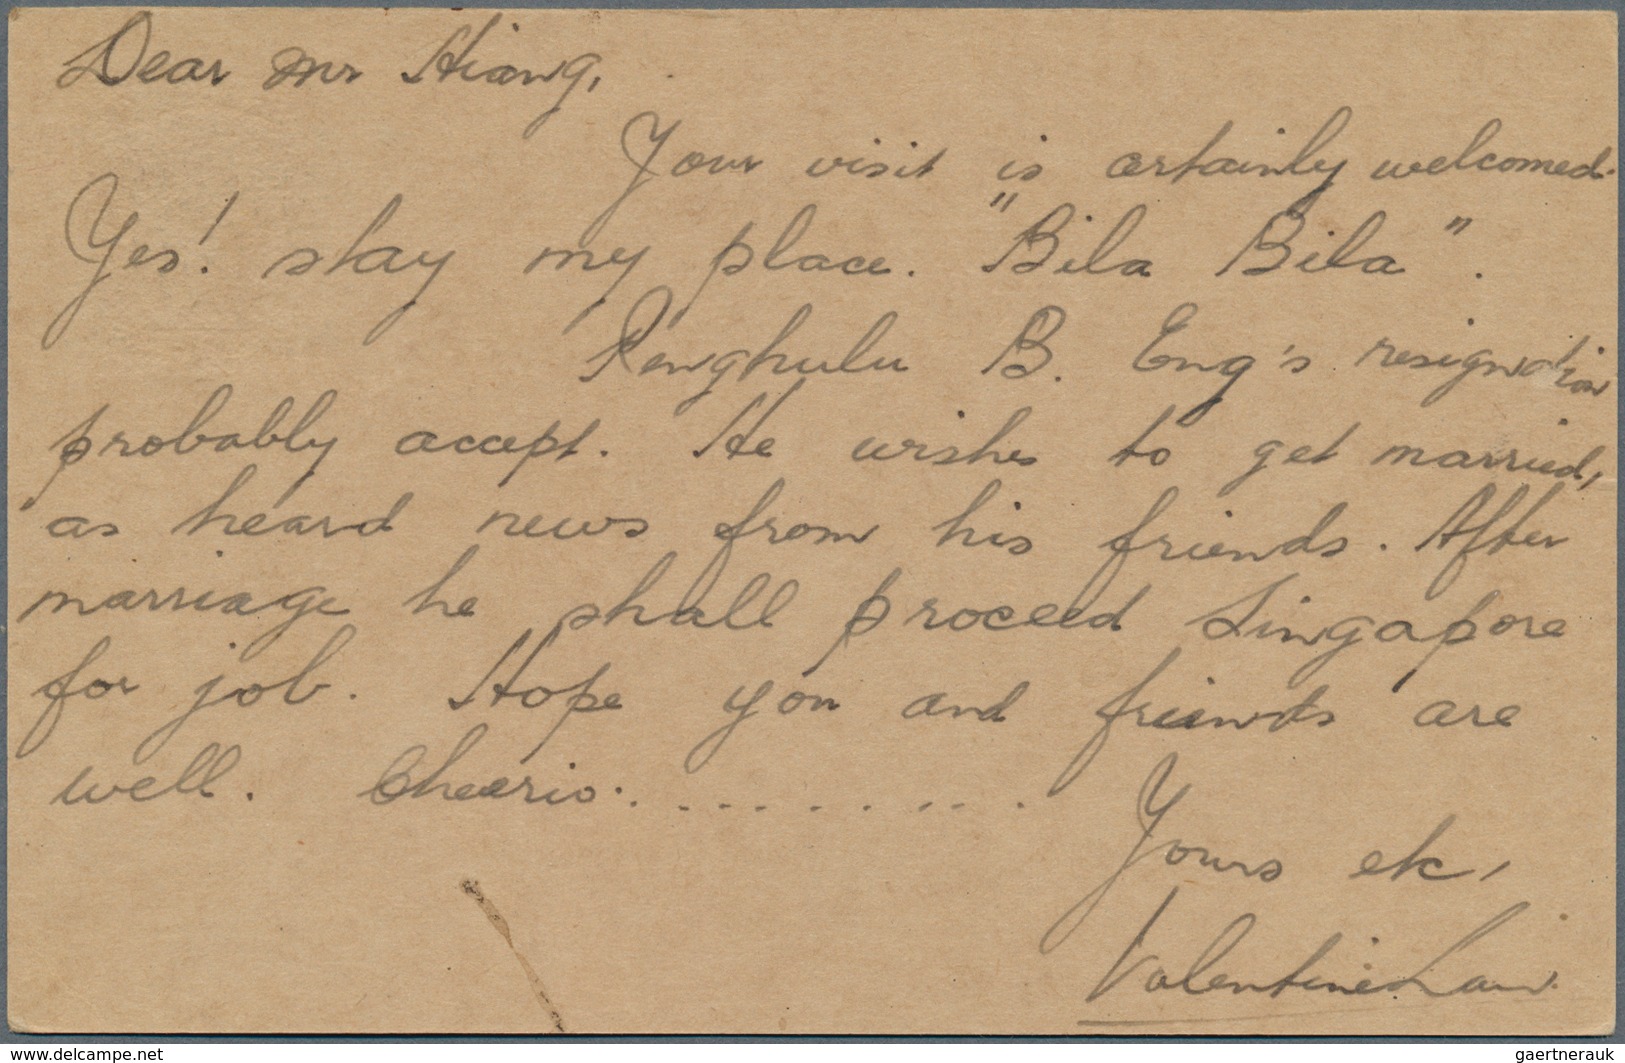 Dear Mr Hiang,
Your visit is certainly welcomed.
Yes! stay my place. "Bila Bila".
Penghulu B. Eng's resignation
probably accept. He wishes to get married,
as heard news from his friends. After
marriage he shall proceed Singapore
for job. Hope you and friends are
well. Cheerio. . . . . . . . . .
Yours etc,
Valentine
www.delcampe.net
gaertnerauk